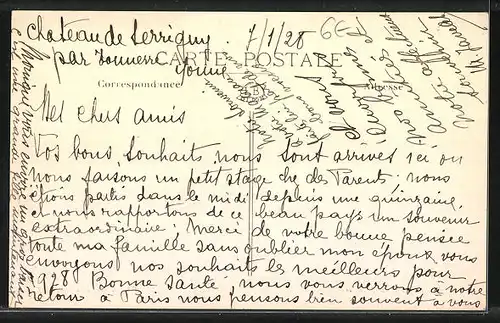 Chateau de Serrigny 7/1/28 6€
par Tonnerre
Yonne
CARTE POSTALE
Correspondance
Adresse
Mes chers amis
Vos bons souhaits nous sont arrivés ici ou
nous faisons un petit stage che des Parents. nous
étions partis dans le midi depuis une quinzaine
et nous rapportons de ce beau pays un souvenir
extraordinaire; Merci de votre bonne pensée
toute ma famille sans oublier mon époux vous
envoyons nos souhaits les meilleurs pour
1928 Bonne santé nous vous verrons à notre
retour à Paris nous pensons bien souvent à vous
Monique vous envoie un gros baiser
une grande fille maintenant
et vous